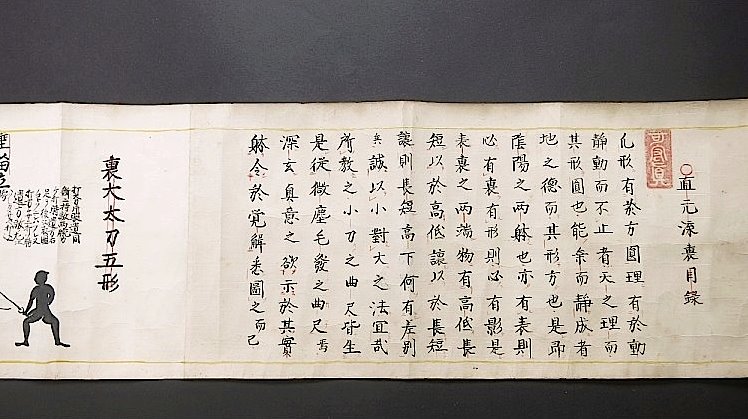 直元流裏目録
凡形有於方圓理有於動
静動而不止者天之理而
其形圓也能余而静成者
地之德而其形方也是即
陰陽之両躰也亦有表則
必有裏有形則必有影是
表裏之两端物有高低長
短以於高低讓以於長短
讓則長短高下何有差別
矣誠以小對大之法宜哉
所教之小刀之曲尺皆生
是従微塵毛發之曲尺焉
深玄真意之欲示於其實
躰令於覚解悉圖之而已
裏大太刀五形